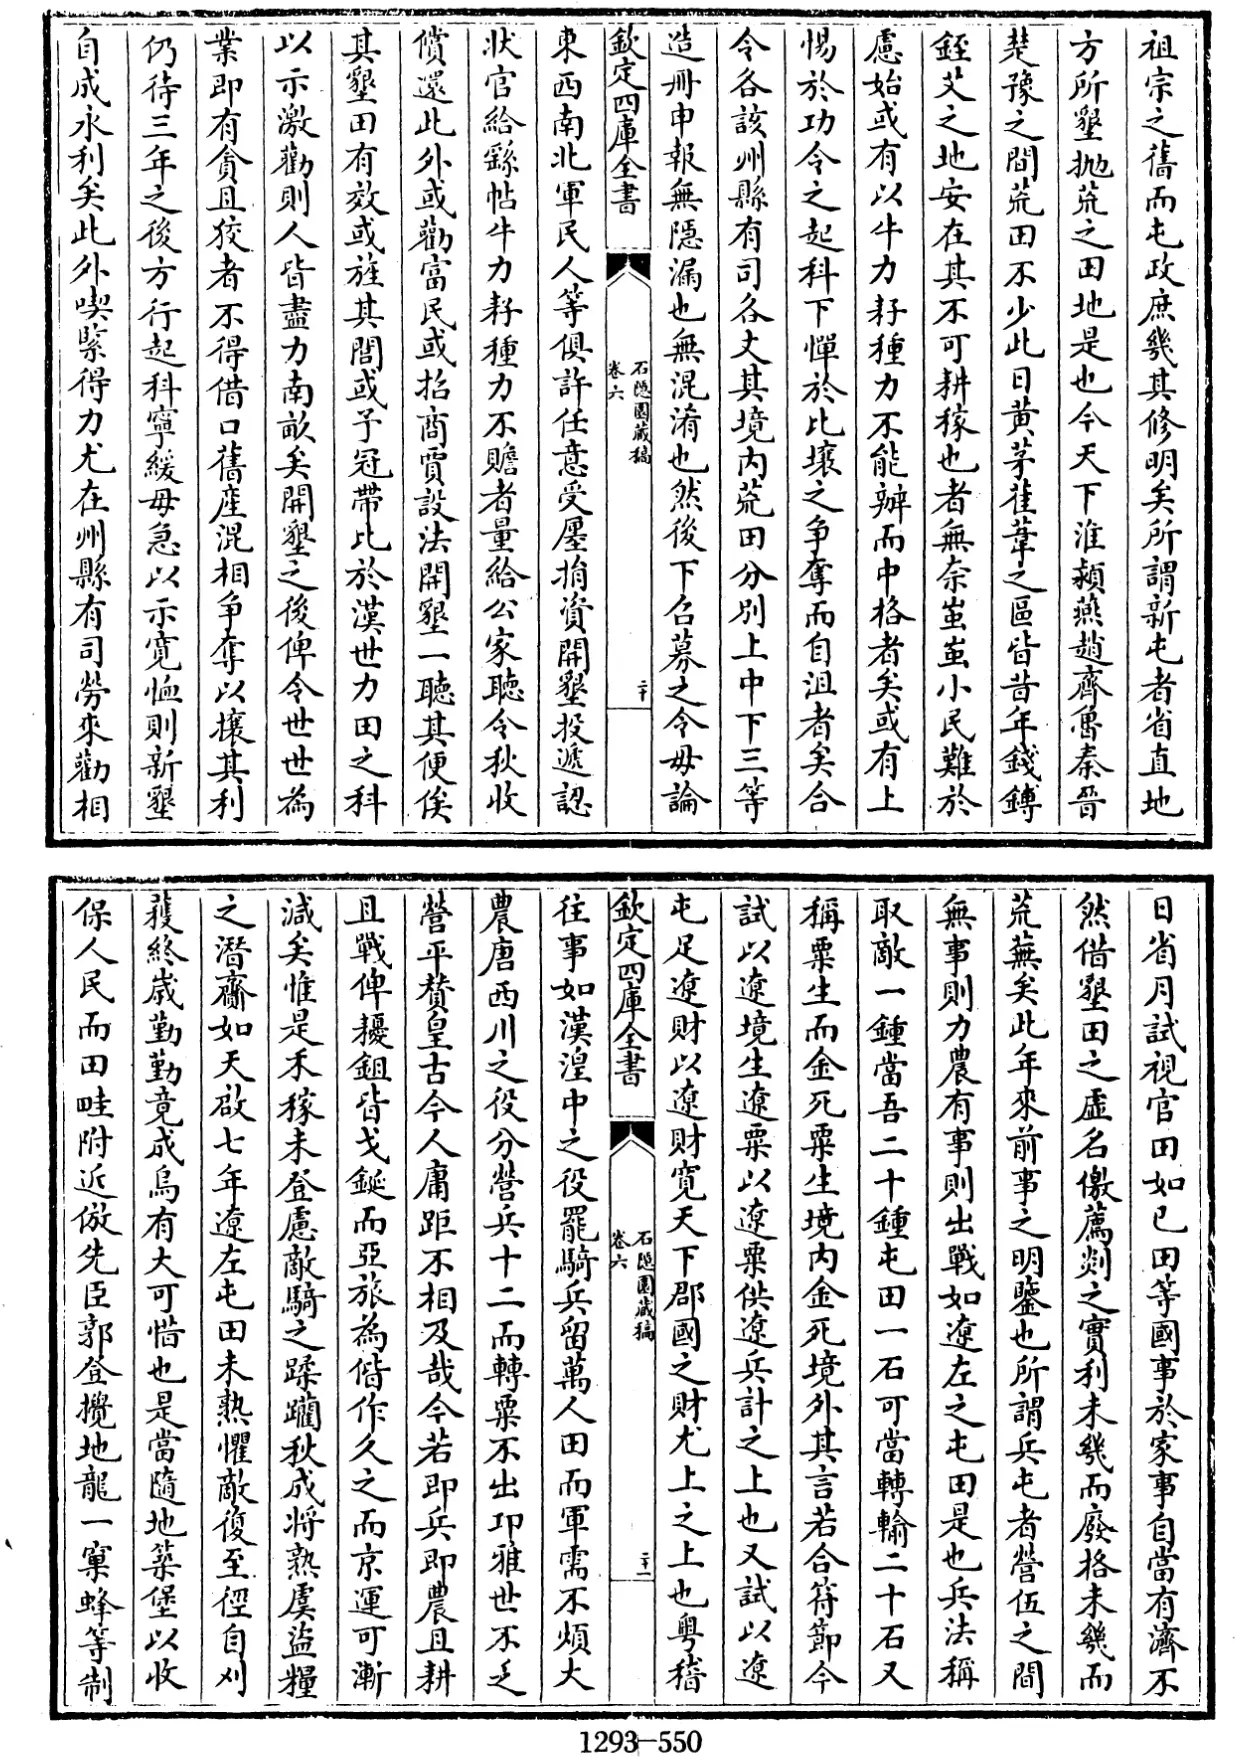 祖宗之舊而屯政庶幾其修明矣所謂新屯者省直地
方所墾抛荒之田地是也今天下淮潁燕趙齊魯秦晉
楚豫之間荒田不少此日黃茅萑葦之區皆昔年錢鎛
銍艾之地安在其不可耕稼也者無奈蚩蚩小民難於
慮始或有以牛力耔種力不能辦而中格者矣或有上
惕於功令之起科下憚於比壤之争奪而自沮者矣合
令各該州縣有司各丈其境内荒田分別上中下三等
造冊申報無隱漏也無混淆也然後下召募之令毋論
欽定四庫全書
石隱園藏稿
卷六
二十
東西南北軍民人等俱許任意受廛捐資開墾投遞認
狀官給繇帖牛力耔種力不贍者量給公家聽令秋收
償還此外或勸富民或招商賈設法開墾一聽其便俟
其墾田有效或旌其閭或予冠帶比於漢世力田之科
以示激勸則人皆盡力南畝矣開墾之後俾令世世為
業即有貪且狡者不得借口舊産混相争奪以攘其利
仍待三年之後方行起科寧緩毋急以示寛恤則新墾
自成永利矣此外喫緊得力尤在州縣有司勞來勸相
日省月試視官田如已田等國事於家事自當有濟不
然借墾田之虚名儌薦剡之實利未幾而廢格未幾而
荒蕪矣此年來前事之明鑒也所謂兵屯者營伍之間
無事則力農有事則出戰如遼左之屯田是也兵法稱
取敵一鍾當吾二十鍾屯田一石可當轉輸二十石又
稱粟生而金死粟生境内金死境外其言若合符節今
試以遼境生遼粟以遼粟供遼兵計之上也又試以遼
屯足遼財以遼財寛天下郡國之財尤上之上也粤稽
欽定四庫全書
石隱園藏稿
卷六
二十一
往事如漢湟中之役罷騎兵留萬人田而軍需不煩大
農唐西川之役分營兵十二而轉粟不出卭雅世不乏
營平賛皇古今人庸距不相及哉今若即兵即農且耕
且戰俾耰鉏皆戈鋋而亞旅為偕作久之而京運可漸
減矣惟是禾稼未登慮敵騎之蹂躪秋成將熟虞盜糧
之潛齎如天啟七年遼左屯田未熟懼敵復至徑自刈
穫終歲勤勤竟成烏有大可惜也是當隨地築堡以收
保人民而田畦附近倣先臣郭登攪地龍一窠蜂等制
1293-550